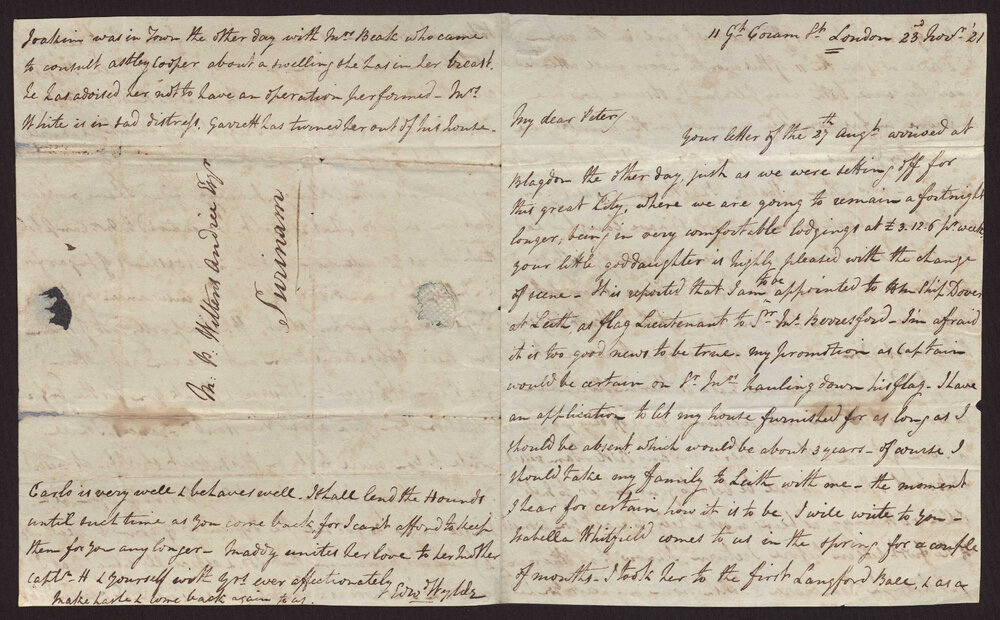 11 Gt. Coram St. London 23d Novr. '21
My dear Peter,
your letter of the 27th Augt. arrived at
Blagdon the other day, just as we were setting off for
this great City, where we are going to remain a fortnight
longer, being in very comfortable lodgings at £3.12.6 pr. week
your little goddaughter is highly pleased with the change
of scene - It is reported that I am to be appointed to HM Ship Dover
at Leith as flag Lieutenant to Sr. Jn. Berresford - I'm afraid
it is too good news to be true - my promotion as Captain
would be certain on Sr. Jns. hauling down his flag - I have
an application to let my house furnished for as long as I
should be absent which would be about 3 years - of course I
should take my family to Leith with me - the moment
I hear for certain how it is to be I will write to you -
Isabella Whitfield comes to us in the spring for a couple
of months - I took her to the first Langford Ball, & as a
Joakim was in Town the other day with Mrs. Beak who came
to consult Astley Cooper about a swelling she has in her breast.
he has advised her not to have an operation performed - Mrs.
White is in sad distress, Garrett has turned her out of his house -
M. P. Wilkens Andries Esqr
Surinam
Carlo is very well & behaves well. I shall lend the Hounds
until such time as you come back, for I can't afford to keep
them for you any longer - Maddy unites her love to her Mother
Captn. H & yourself with yrs. ever affectionately
Edwd. Wylde
Make haste & come back again to us.